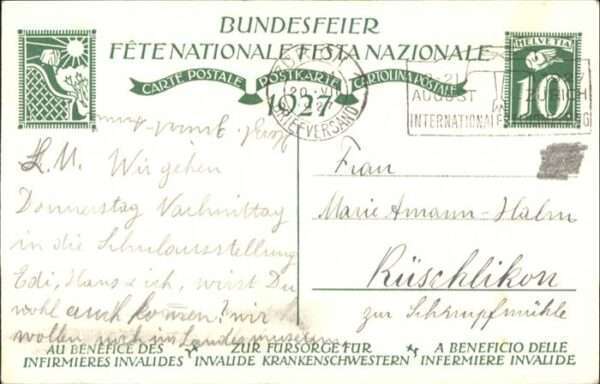 BUNDESFEIER
FÊTE NATIONALE FESTA NAZIONALE
CARTE POSTALE POSTKARTE CARTOLINA POSTALE
1927
HELVETIA
10
BRIEFVERSAND
21
AUGUST ZÜRICH
INTERNATIONALE
L. M. Wir gehen
Donnerstag Nachmittag
in die Schulausstellung
Edi, Hans & ich, wirst Du
wohl auch kommen? wir
wollen noch ins Landesmuseum
Frau
Marie Amann-Halm
Rüschlikon
zur Schimpfmühle
AU BÉNÉFICE DES ZUR FÜRSORGE FÜR A BENEFICIO DELLE
INFIRMIÈRES INVALIDES INVALIDE KRANKENSCHWESTERN INFERMIERE INVALIDE